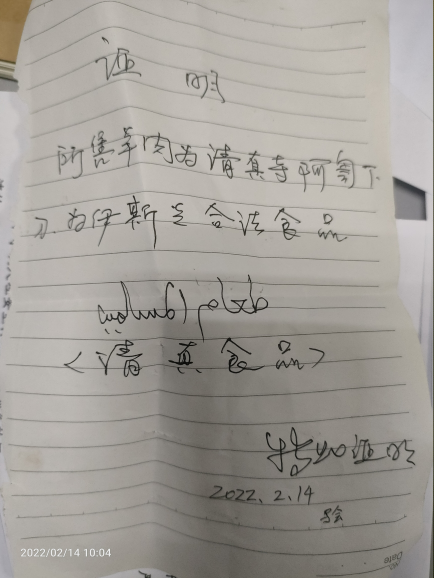 证明
所售羊肉为清真寺阿訇下
刀.为伊斯兰合法食品
<清真食品>
特此证明
2022.2.14
2022/02/14 10:04
Date